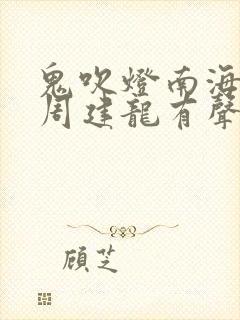 鬼吹燈南海
周建龍有聲
顧芝